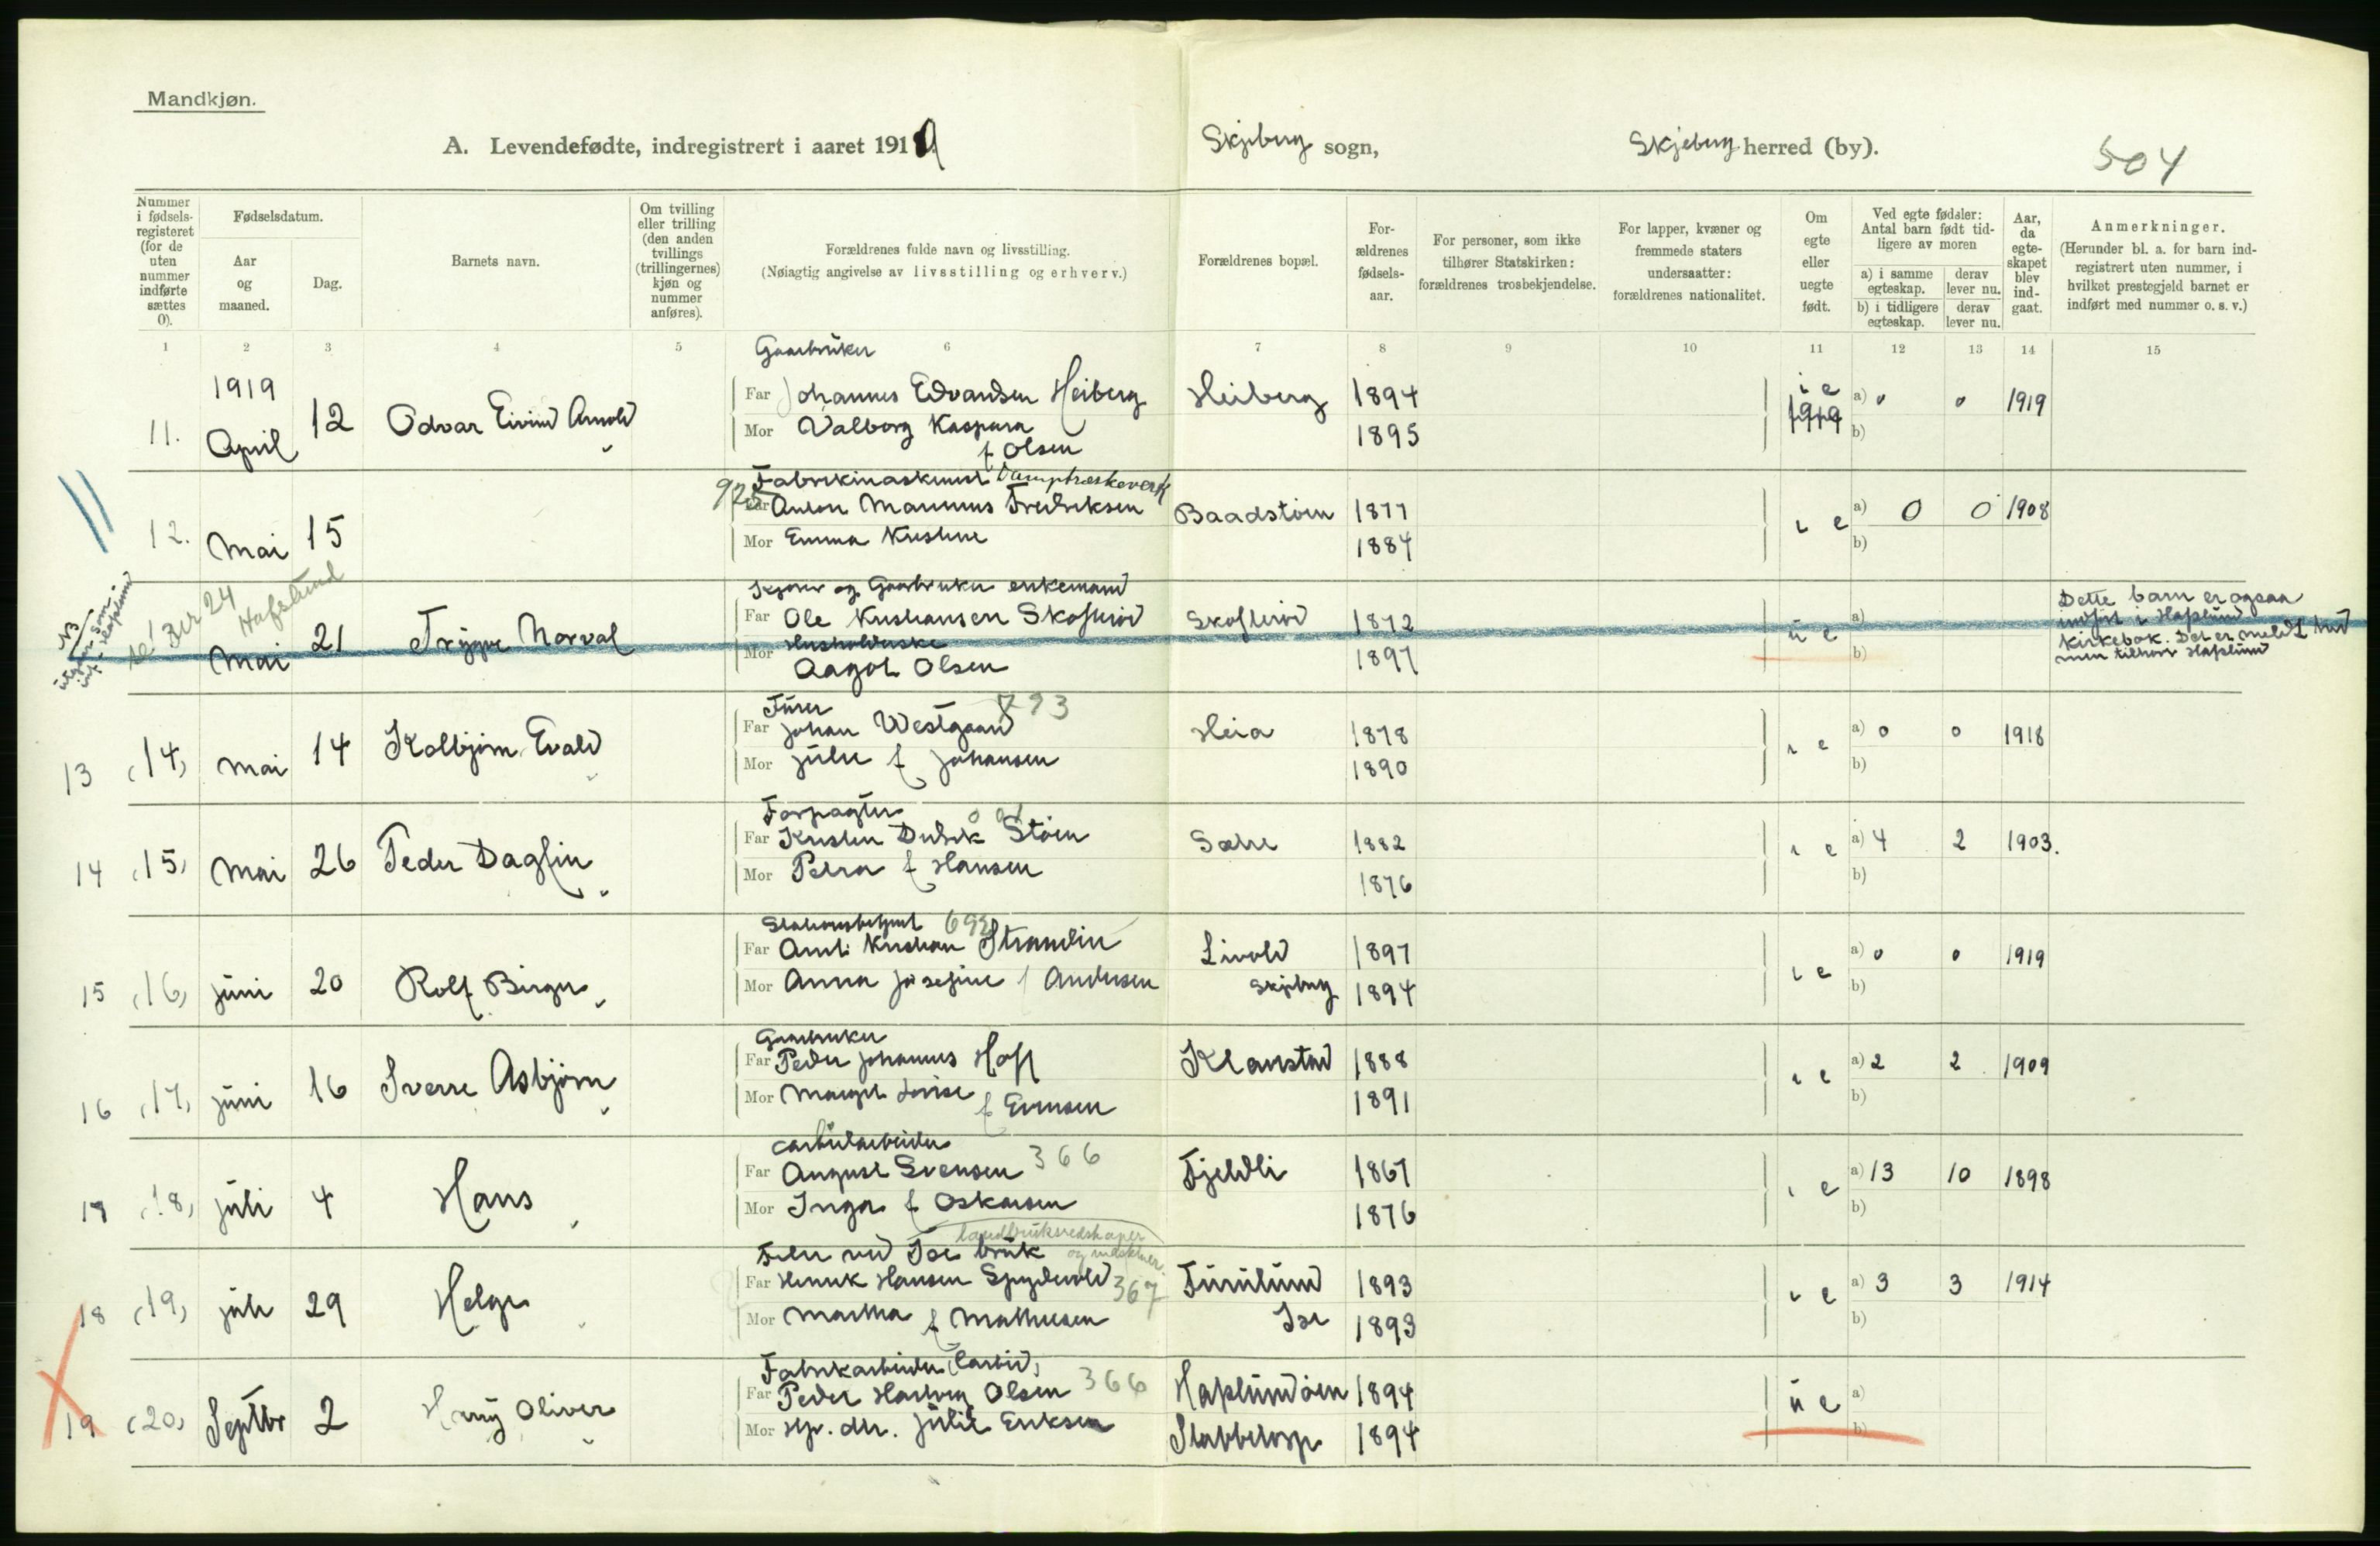 Mandkjøn.
A. Levendefødte, indregistrert i aaret 1919
Skjeberg sogn,
Skjeberg herred (by).
504
Nummer i fødselsregisteret (for de uten nummer indførte sættes 0).
Fødselsdatum.
Aar og maaned.
Dag.
Barnets navn.
Om tvilling eller trilling (den anden tvillings (trillingernes) kjøn og nummer anføres).
Forældrenes fulde navn og livsstilling.
(Nøiagtig angivelse av livsstilling og erhverv.)
Forældrenes bopæl.
Forældrenes fødselsaar.
For personer, som ikke tilhører Statskirken: forældrenes trosbekjendelse.
For lapper, kvæner og fremmede staters undersaatter: forældrenes nationalitet.
Om egte eller uegte født.
Ved egte fødsler: Antal barn født tidligere av moren
a) i samme egteskap.
derav lever nu.
b) i tidligere egteskap.
derav lever nu.
Aar, da egteskapet blev indgaat.
Anmerkninger.
(Herunder bl. a. for barn indregistrert uten nummer, i hvilket prestegjeld barnet er indført med nummer o. s. v.)
1 2 3 4 5 6 7 8 9 10 11 12 13 14 15
Gaarbruker
11. 1919 April 12 Odvar Eivind Arnold Far Johannes Edvardsen Heiberg Heiberg 1894 i e 1919 a) 0 0 1919
Mor Valborg Kaspara f Olsen 1895 b)
Fabrikmaskinist Damptræskeverk
925
12. Mai 15 Far Anton Marinius Fredriksen Baadstöen 1877 i e a) 0 0 1908
Mor Emma Kristine 1884 b)
se 3 er 24 Hafslund
og Gaarbruker enkemand
Mai 21 Trygve Norval Far Ole Kristiansen Skofterød Skofterød 1872 ü e a)
Husholderske
Mor Aagot Olsen 1897 b)
Dette barn er ogsaa
indført i Hafslund
Kirkebok. Det er meldt hid
men tilhører Hafslund
Fürer 793
13 (14) Mai 14 Kolbjørn Evald Far Johan Westgaard Heia 1878 i e a) 0 0 1918
Mor Julie f Johansen 1890 b)
Forpagter
14 (15) Mai 26 Peder Dagfin Far Kristen Didrik Stöen 1882 i e a) 4 2 1903.
Mor Petra f Hansen 1876 b)
Stationsbetjent 692
15 (16) juni 20 Rolf Birger Far Kristian Strandlie Livold 1897 i e a) 0 0 1919
Mor Anna Josefine f Andersen Skjeberg 1894 b)
Gaarbruker
16 (17) juni 16 Sverre Asbjørn Far Peder Johannes Hoff Klavestad 1888 i e a) 2 2 1909
Mor Margit Lovise f Evensen 1891 b)
Carbidarbeider
17 (18) juli 4 Hans Far August Svensen 366 Fjeldli 1867 i e a) 13 10 1898
Mor Inga f Oskarsen 1876 b)
landbruksredskaper og maskiner.
Filer ved Ise brük
18 (19) juli 29 Helge Far Henrik Hansen Spydevold 367 Furulund 1893 i e a) 3 3 1914
Mor Martha f Mathiesen Ise 1893 b)
Fabrikarbeider (Carbid)
19 (20) Septbr 2 Harry Oliver Far Peder Hartvig Olsen 366 Hafslundöen 1894 ü e a)
Mor Julie Eriksen Stabbetorp 1894 b)